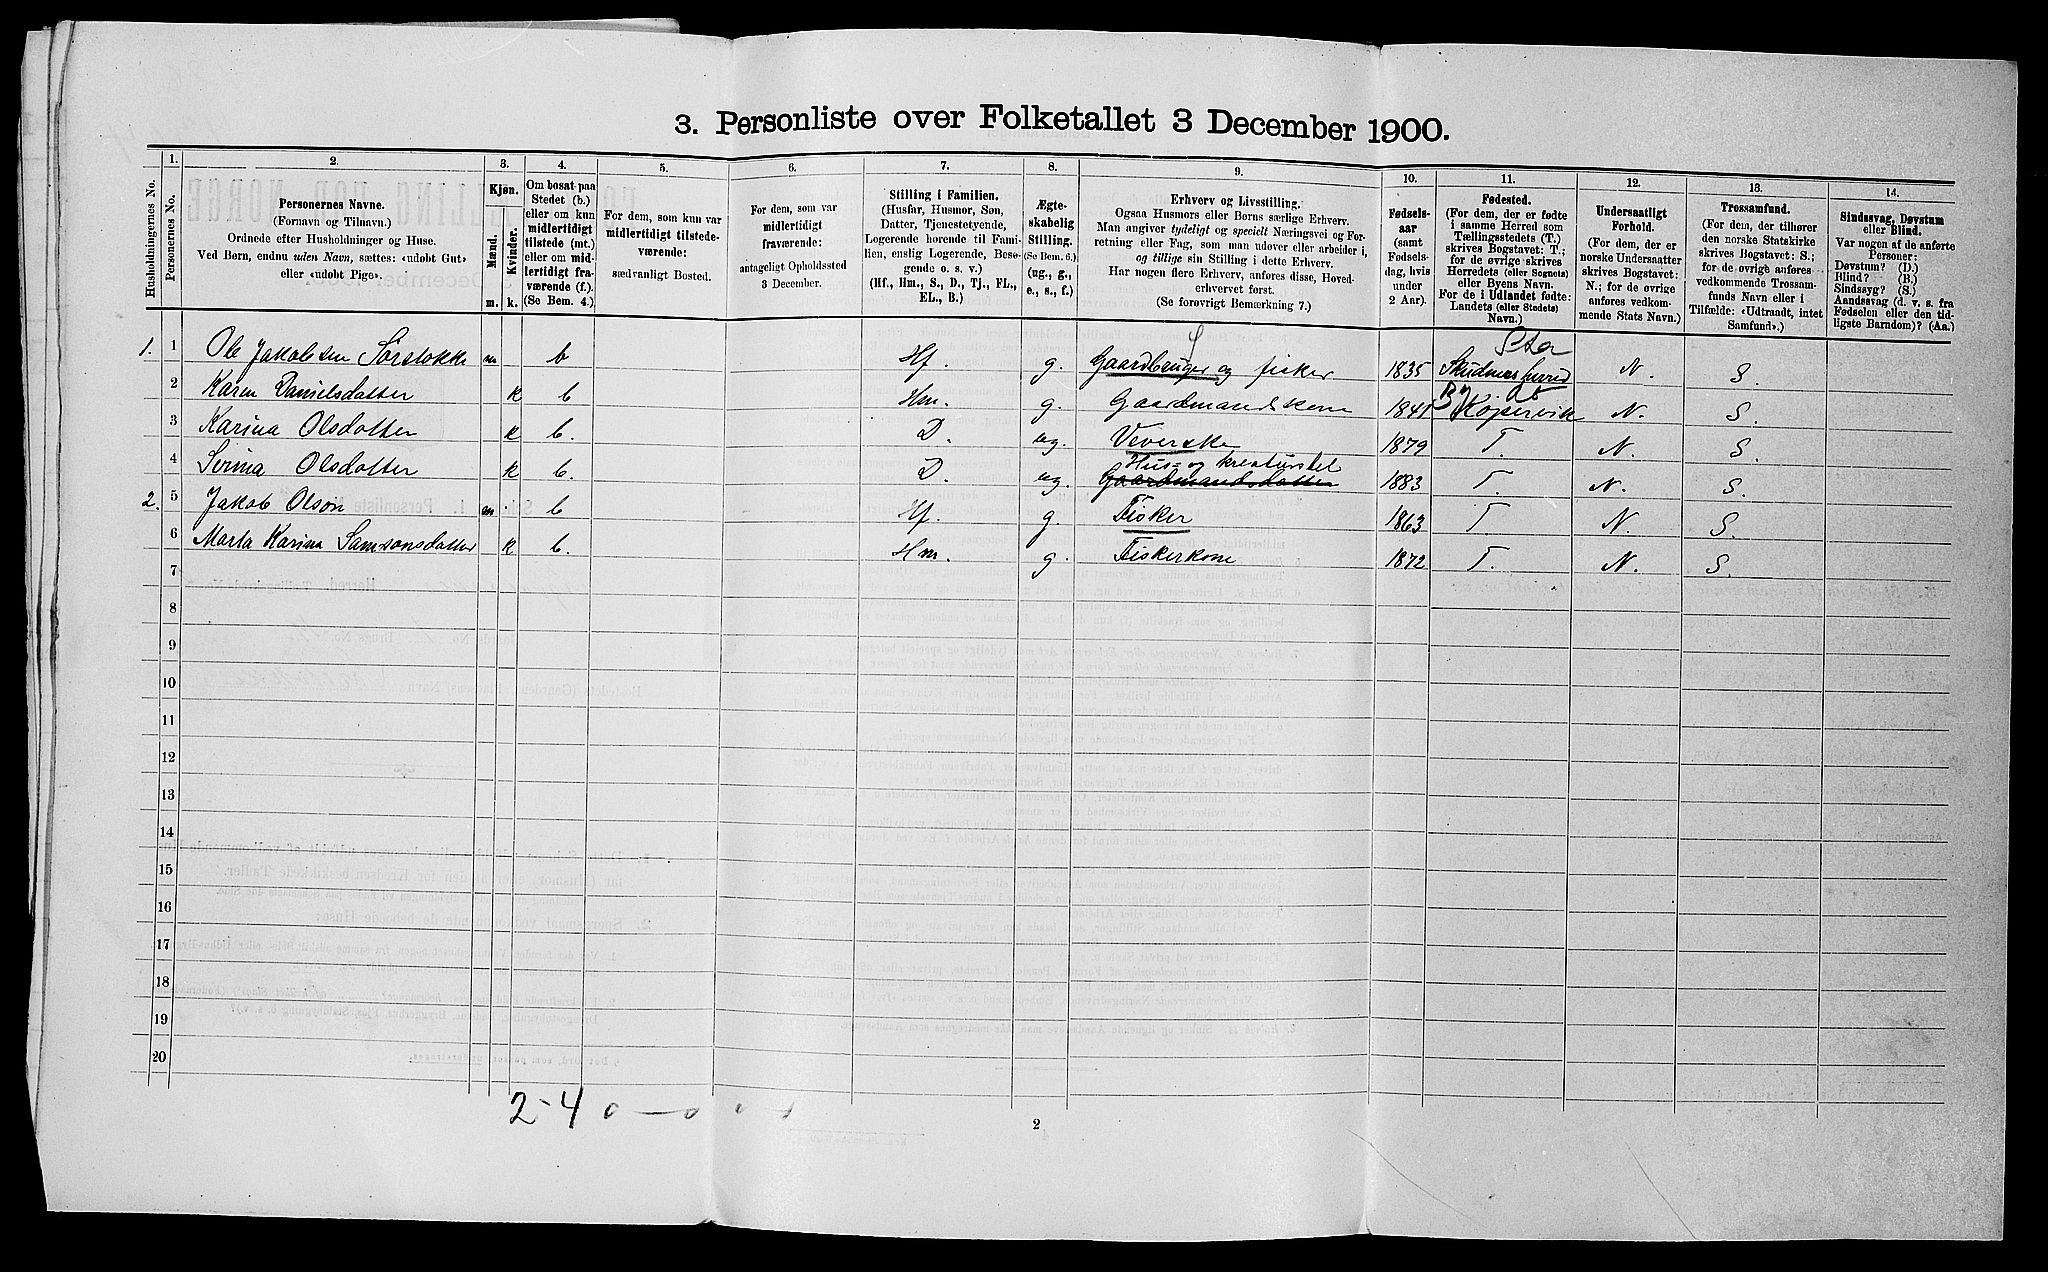 3. Personliste over Folketallet 3 December 1900.
1. 2. 3. 4. 5. 6. 7. 8. 9. 10. 11. 12. 13. 14.
Husholdningernes No.
Personernes No.
Personernes Navne.
(Fornavn og Tilnavn.)
Ordnede efter Husholdninger og Huse.
Ved Børn, endnu uden Navn, sættes: «udøbt Gut»
eller «udøbt Pige».
Kjøn.
Mænd.
Kvinder.
m. k.
Om bosat paa
Stedet (b.)
eller om kun
midlertidigt
tilstede (mt.)
eller om mid-
lertidigt fra-
værende (f.).
(Se Bem. 4.)
For dem, som kun var
midlertidigt tilstede-
værende:
sædvanligt Bosted.
For dem, som var
midlertidigt
fraværende:
antageligt Opholdssted
3 December.
Stilling i Familien.
(Husfar, Husmor, Søn,
Datter, Tjenestetyende,
Logerende hørende til Fami-
lien, enslig Logerende, Besø-
gende o. s. v.)
(Hf., Hm., S., D., Tj., FL.,
EL., B.)
Ægte-
skabelig
Stilling.
(Se Bem. 6.)
(ug., g.,
e., s., f.)
Erhverv og Livsstilling.
Ogsaa Husmors eller Børns særlige Erhverv.
Man angiver tydeligt og specielt Næringsvei og For-
retning eller Fag, som man udøver eller arbeider i,
og tillige sin Stilling i dette Erhverv.
Har nogen flere Erhverv, anføres disse, Hoved-
erhvervet først.
(Se forøvrigt Bemærkning 7.)
Fødsels-
aar
(samt
Fødsels-
dag, hvis
under
2 Aar).
Fødested.
(For dem, der er fødte
i samme Herred som
Tællingsstedets (T.)
skrives Bogstavet: T.;
for de øvrige skrives
Herredets (eller Sognets)
eller Byens Navn.
For de i Udlandet fødte:
Landets (eller Stedets)
Navn.)
Undersaatligt
Forhold.
(For dem, der er
norske Undersaatter
skrives Bogstavet:
N.; for de øvrige
anføres vedkom-
mende Stats Navn.)
Trossamfund.
(For dem, der tilhører
den norske Statskirke
skrives Bogstavet: S.;
for de øvrige anføres
vedkommende Trossam-
funds Navn eller i
Tilfælde: «Udtraadt, intet
Samfund».)
Sindssvag, Døvstum
eller Blind.
Var nogen af de anførte
Personer:
Døvstum? (D.)
Blind? (B.)
Sindssyg? (S.)
Aandssvag (d. v. s. fra
Fødselen eller den tid-
ligste Barndom)? (Aa.)
1. 1 Ole Jakobsen Sørstokke m b Hf. g. Gaardbruger og fisker 1835 Skudnes herred N. S.
2 Karen Danielsdatter k b Hm. g. Gaardmandskone 1841 By Kopervik N. S.
3 Karina Olsdatter k b. D. ug. Veverske 1879 T. N. S.
Hus- og kreaturstel
4 Serina Olsdatter k b. D. ug. Gaardmandsdatter 1883 T. N. S.
2. 5 Jakob Olson m b Hf. g. Fisker 1863 T N. S.
6 Marta Karina Samsonsdatter k b. Hm. g. Fiskerkone 1872 T. N. S.
7
8
9
10
11
12
13
14
15
16
17
18
19
20
2-4 0 - 0
2